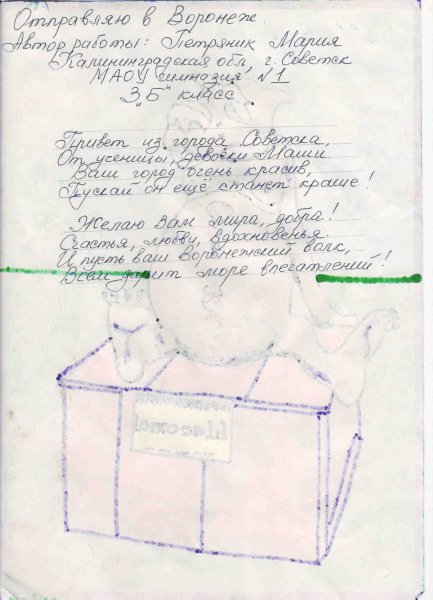 Отправляю в Воронеж.
Автор работы: Петряник Мария
Калининградская обл, г. Советск
МАОУ гимназия №1
3 „Б" класс
Привет из города Советска,
От ученицы, девочки Маши.
Ваш город очень красив,
Пускай он ещё станет краше!
Желаю Вам мира, добра!
Счастья, любви, вдохновенья.
И пусть ваш Воронежский волк,
Всем дарит море впечатлений!